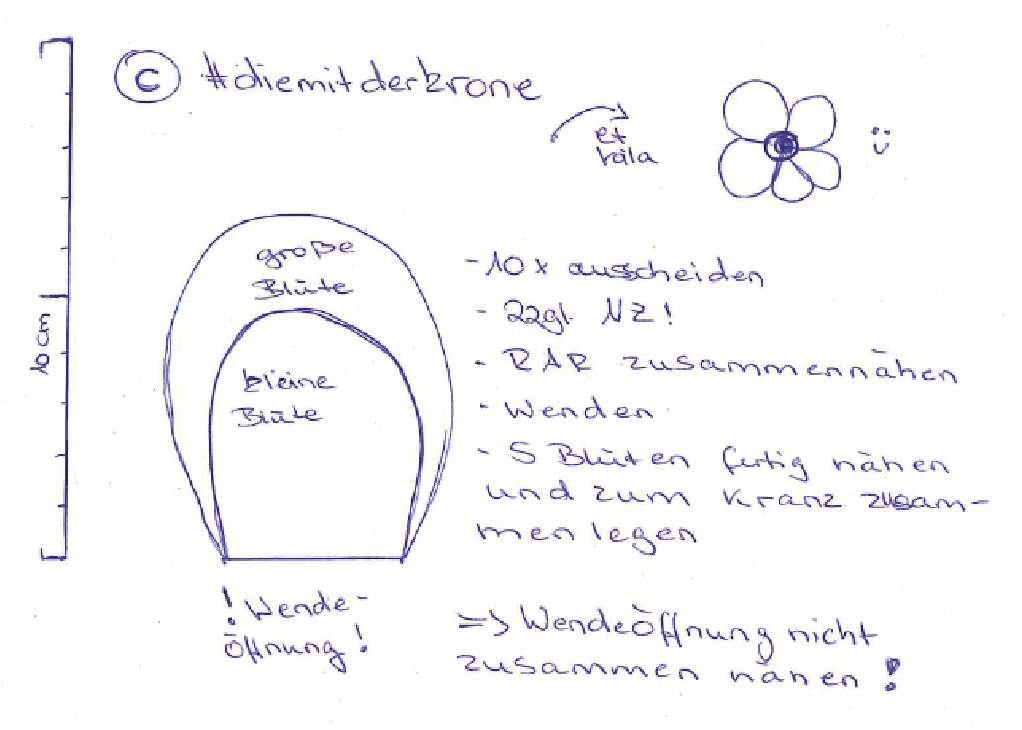 © #diemitderkrone
et
voila
große
Blüte
10 cm
kleine
Blüte
- 10 x ausscheiden
- zzgl. NZ!
- RAR zusammennähen
- Wenden
- 5 Blüten fertig nähen
und zum Kranz zusam-
men legen
! Wende-
öffnung!
=> Wendeöffnung nicht
zusammen nähen !